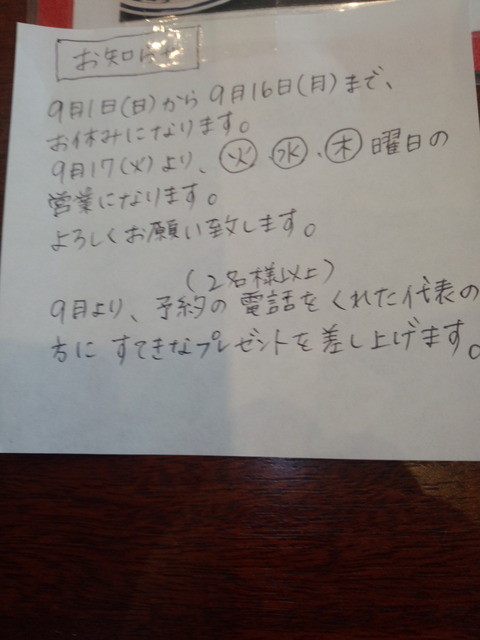 お知らせ
9月1日(日)から9月16日(月)まで、
お休みになります。
9月17(火)より、火、水、木曜日の
営業になります。
よろしくお願い致します。
(2名様以上)
9月より、予約の電話をくれた代表の
方にすてきなプレゼントを差し上げます。